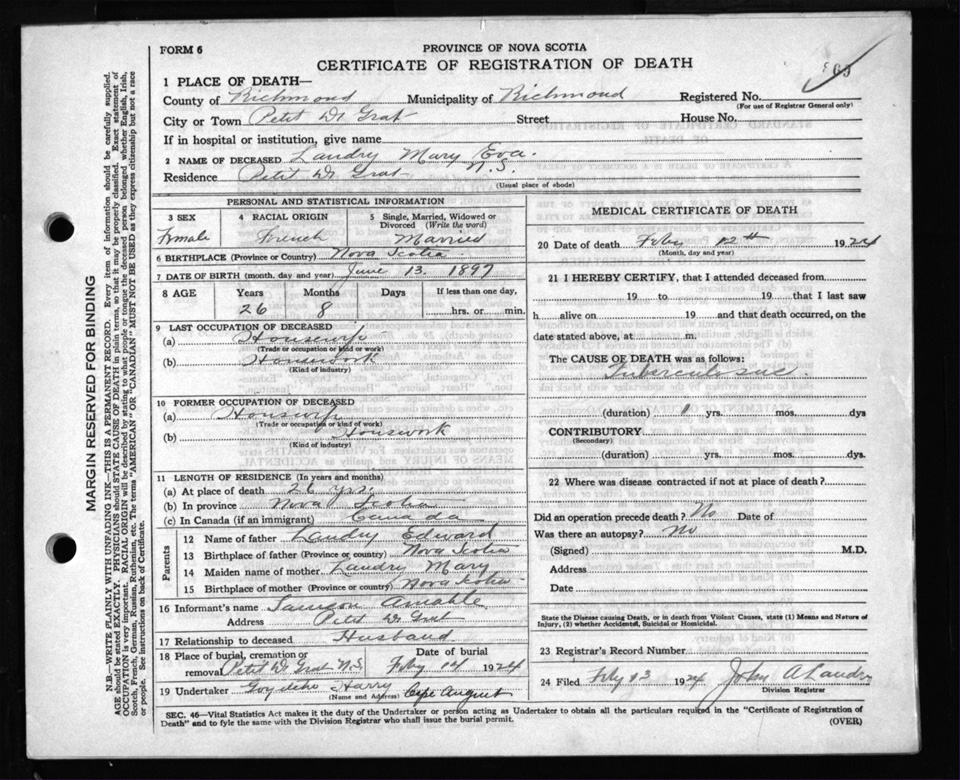 FORM 6
PROVINCE OF NOVA SCOTIA
CERTIFICATE OF REGISTRATION OF DEATH
1 PLACE OF DEATH—
County of Richmond Municipality of Richmond Registered No.
(For use of Registrar General only)
City or Town Petit De Grat Street House No.
If in hospital or institution, give name
2 NAME OF DECEASED Landry Mary Eva.
Residence Petit De Grat N.S.
(Usual place of abode)
PERSONAL AND STATISTICAL INFORMATION
3 SEX 4 RACIAL ORIGIN 5 Single, Married, Widowed or Divorced (Write the word)
Female French Married
6 BIRTHPLACE (Province or Country) Nova Scotia
7 DATE OF BIRTH (month, day and year) June 13. 1897
8 AGE Years Months Days If less than one day,
26 8 hrs. or min.
9 LAST OCCUPATION OF DECEASED
(a) Housewife
(Trade or occupation or kind of work)
(b) Housework
(Kind of industry)
10 FORMER OCCUPATION OF DECEASED
(a) Housewife
(Trade or occupation or kind of work)
(b) Housework
(Kind of industry)
11 LENGTH OF RESIDENCE (In years and months)
(a) At place of death 26 yrs.
(b) In province Nova Scotia
(c) In Canada (if an immigrant) Canada
Parents
12 Name of father Landry Edward
13 Birthplace of father (Province or country) Nova Scotia
14 Maiden name of mother Landry Mary
15 Birthplace of mother (Province or country) Nova Scotia
16 Informant's name Samson
Address Petit De Grat
17 Relationship to deceased Husband
18 Place of burial, cremation or removal Petit De Grat N.S. Date of burial Feby 14 1924
19 Undertaker Harry Cape August
(Name and Address)
MEDICAL CERTIFICATE OF DEATH
20 Date of death Feby 12th 1924
(Month, day and year)
21 I HEREBY CERTIFY, that I attended deceased from
19 to 19 that I last saw
h alive on 19 and that death occurred, on
date stated above, at m.
The CAUSE OF DEATH was as follows:
Tuberculosus.
(duration) 1 yrs. mos. dys
CONTRIBUTORY
(Secondary)
(duration) yrs. mos. dys.
22 Where was disease contracted if not at place of death?
Did an operation precede death? No Date of
Was there an autopsy? No
(Signed) M.D.
Address
Date
State the Disease causing Death, or in death from Violent Causes, state (1) Means and Nature of
Injury, (2) whether Accidental, Suicidal or Homicidal.
23 Registrar's Record Number
24 Filed Feby 13 1924 John A Landry
Division Registrar
SEC. 46—Vital Statistics Act makes it the duty of the Undertaker or person acting as Undertaker to obtain all the particulars required in the "Certificate of Registration of
Death" and to fyle the same with the Division Registrar who shall issue the burial permit.
(OVER)
MARGIN RESERVED FOR BINDING
N.B.—WRITE PLAINLY WITH UNFADING INK—THIS IS A PERMANENT RECORD. Every item of information should be carefully supplied.
AGE should be stated EXACTLY. PHYSICIANS should STATE CAUSE OF DEATH in plain terms, so that it may be properly classified. Exact statement of
OCCUPATION is very important. RACIAL ORIGIN will be described by stating to what people or tongue the deceased person belonged whether English, Irish,
Scotch, French, German, Russian, Ruthenian, etc. The terms "AMERICAN" or "CANADIAN" MUST NOT BE USED as they express citizenship but not a race
or people. See instructions on back of Certificate.